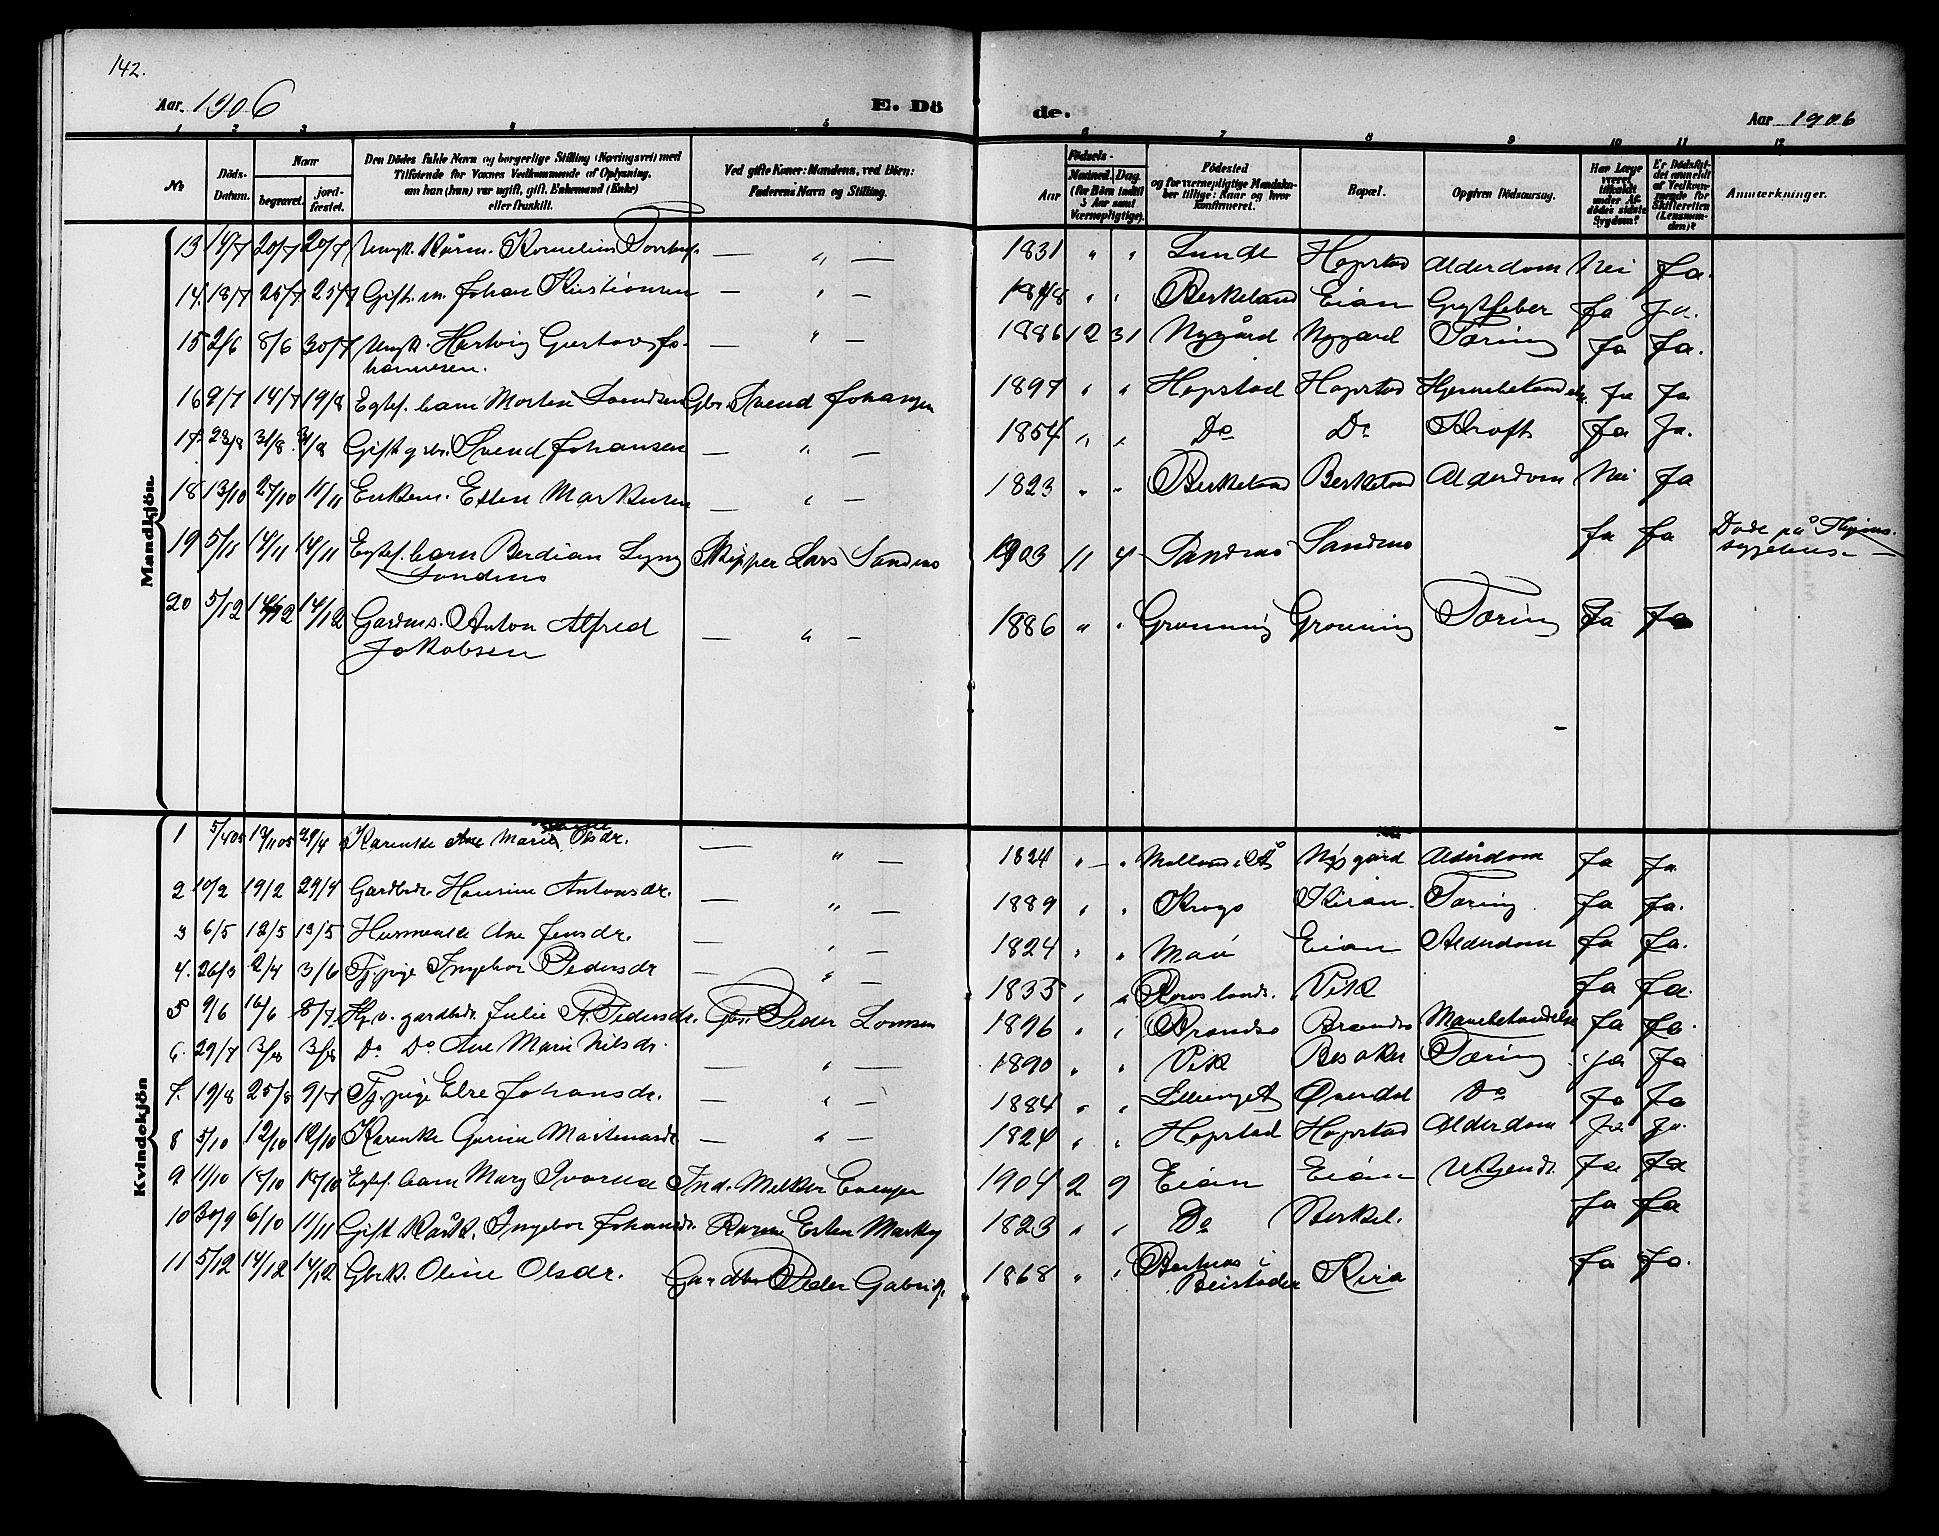 142.
Aar. 1906 E. Dö de. Aar 1906
1 2 3 4 5 6 7 8 9 10 11 12
No
Döds-Datum.
Naar
begravet.
jord-fæstet.
Den Dödes fulde Navn og borgerlige Stilling (Næringsvei) med
Tilföiende for Voxnes Vedkommende af Oplysning,
om han (hun) var ugift, gift, Enkemand (Enke)
eller fraskilt.
Ved gifte Koner: Mandens, ved Börn:
Faderens Navn og Stilling.
Födsels-
Aar
Maaned. Dag.
(for Börn indtil
5 Aar samt
Værnepligtige).
Födested
og for værnepligtige Mandska-
ber tillige: Naar og hvor
konfirmeret.
Bopæl.
Opgiven Dödsaarsag.
Har Læge
været
tilkaldt
under Af-
dödes sidste
Sygdom?
Er Dödsfal-
det anmeldt
af Vedkom-
mende for
Skifteretten
(Lensman-
den)?
Anmærkninger.
Mandkjön.
13 14/7 20/7 20/7 Ungk. Kårm. Kornelius — " — 1831 " " Lunde Hopstad Alderdom Nei Ja.
14 18/7 25/7 25/7 Gift m. Johan Kristiansen — " — 1848 " " Berkeland Eian Gigtfeber Ja Ja.
15 2/6 8/6 30/7 Ungk. Hartvig Gustav Jo- — " — 1886 12 31 Nygård Nygard Tæring Ja Ja.
hannesen.
16 9/7 14/7 19/8 Egtef. barn Morten Svendsen Gbr. Svend Johansen 1897 " " Hopstad Hopstad Ja Ja
17 23/8 31/8 31/8 Gift gbr. Svend Johansen — " — 1854 " " Do Do Kræft Ja Ja.
18 13/10 27/10 11/11 Enkem. Esten Markusen — " — 1823 " " Berkeland Berkeland Alderdom Nei Ja
19 5/11 14/11 14/11 Egtef. barn Berdian Lyng Skipper Lars Sandmo 1903 11 4 Sandmo Sandmo Ja Ja Døde på
Sandmo sygehus
20 5/12 14/12 14/12 Gardms. Anton Alfred — " — 1886 " " Grønning Grønning Tæring Ja Ja
Jakobsen
Kvindekjön
1 5/4 05 29/4 Kårenke Ane Marie Olsdr. — " — 1824 " " Nygard Alderdom Ja Ja
2 10/2 19/2 29/4 Gardbdr. Antonsdr. — " — 1889 " " Krogo Kiran. Tæring Ja Ja.
3 6/5 12/5 13/5 Husmenke Ane Jensdr. — " — 1824 " " Eian Alderdom Ja Ja.
4. 26/3 2/4 3/6 Tj.pige Ingebor Pedersdr — " — 1833 " " Vik Ja Ja.
5 9/6 16/6 8/7 gardbdr. Julie P. Pedersdr. Gbr. Peder Lornsen 1896 " " Brandsø Brandsø Ja Ja.
6. 29/7 3/8 3/8 Do Do Ane Marie Nilsdr. — " — 1890 " " Vik Besaker Tæring Ja Ja
7. 19/8 25/8 9/7 Tj.pige Else Johansdr. — " — 1884 " " Do Ja Ja
8 5/10 12/10 12/10 Karenke Gurine Martinusdr — " — 1824 " " Hopstad Hopstad Alderdom Ja Ja.
9 11/10 17/10 17/10 Egtef. barn Mary Ind. Melkior Evensen 1904 2 9 Eian Eian Ukjendt Ja Ja
10 30/9 6/10 11/11 Gift Kårk. Ingebor Johansdr. Esten Mark. 1823 " " Do Berkel. Ja Ja
11 5/12 14/12 14/12 Gbrk. Oline Olsdr. Gardbr Peder Gabriels. 1868 " " i Kira Ja Ja.
Beistaden